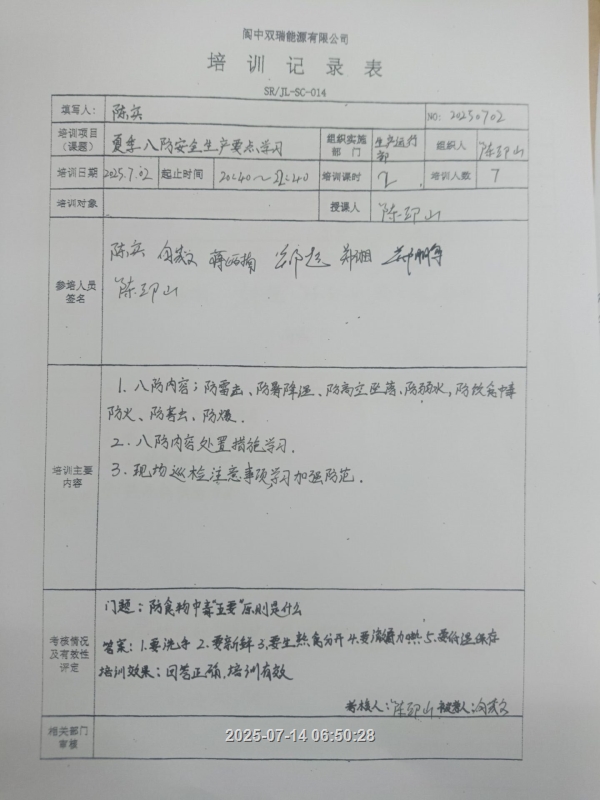 阆中双瑞能源有限公司
培训记录表
SR/JL-SC-014
填写人： 陈实 NO: 20250702
培训项目（课题） 夏季八防安全生产要点学习 组织实施部门 生产运行部 组织人 陈卬山
培训日期 2025.7.02 起止时间 20:40～22:40 培训课时 2 培训人数 7
培训对象 授课人 陈卬山
参培人员签名
陈实 郑湘
陈卬山
培训主要内容
1. 八防内容；防雷击、防暑降温、防高空坠落、防弱水，防饮食中毒
防火、防害虫、防爆.
2. 八防内容处置措施学习.
3. 现场巡检注意事项学习加强防范.
考核情况及有效性评定
问题：防食物中毒"五要"原则是什么
答案：1.要洗手 2.要新鲜 3.要生熟食分开 4.要加热 5.要低温保存
培训效果：回答正确，培训有效
考核人：陈卬山
相关部门审核
2025-07-14 06:50:28